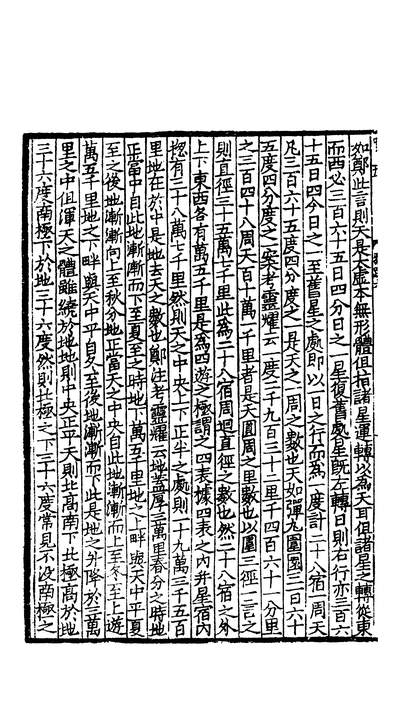 如鄭此言則天是大虛本無形體但指諸星運轉以為天耳但諸星之轉從東
而西必三百六十五日四分日之一星復舊處星旣左轉日則右行亦三百六
十五日四分日之一至舊星之處即以一日之行而為一度計二十八宿一周天
凡三百六十五度四分度之一是天之一周之數也天如彈丸圍圜三百六十
五度四分度之一案考靈耀云一度二千九百三十二里千四百六十一分里
之三百四十八周天百七萬一千里者是天圓周之里數也以圍三徑一言之
則直徑三十五萬七千里此為二十八宿周迴直徑之數也然二十八宿之外
上下東西各有萬五千里是為四遊之極謂之四表據四表之內并星宿內
揔有三十八萬七千里然則天之中央上下正半之處則一十九萬三千五百
里地在於中是地去天之數也鄭注考靈耀云地蓋厚三萬里春分之時地
正當中自此地漸漸而下至夏至之時地下遊萬五千里地之上畔與天中平夏
至之後地漸漸向上至秋分地正當天之中央自此地漸漸而上至冬至上遊
萬五千里地之下畔與天中平自冬至後地漸漸而下此是地之升降於三萬
里之中但渾天之體雖繞於地地則中央正平天則北高南下北極高於地
三十六度南極下於地三十六度然則北極之下三十六度常見不沒南極之